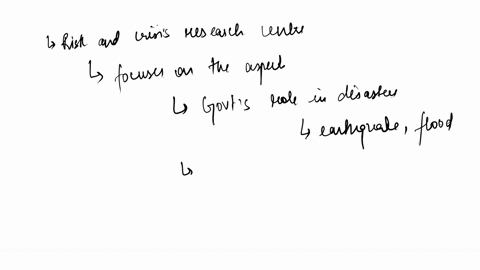 ↳ Risk and crisis research centre
↳ focuses on the aspect
↳ Govt's role in disasters
↳ earthquake, flood
↳